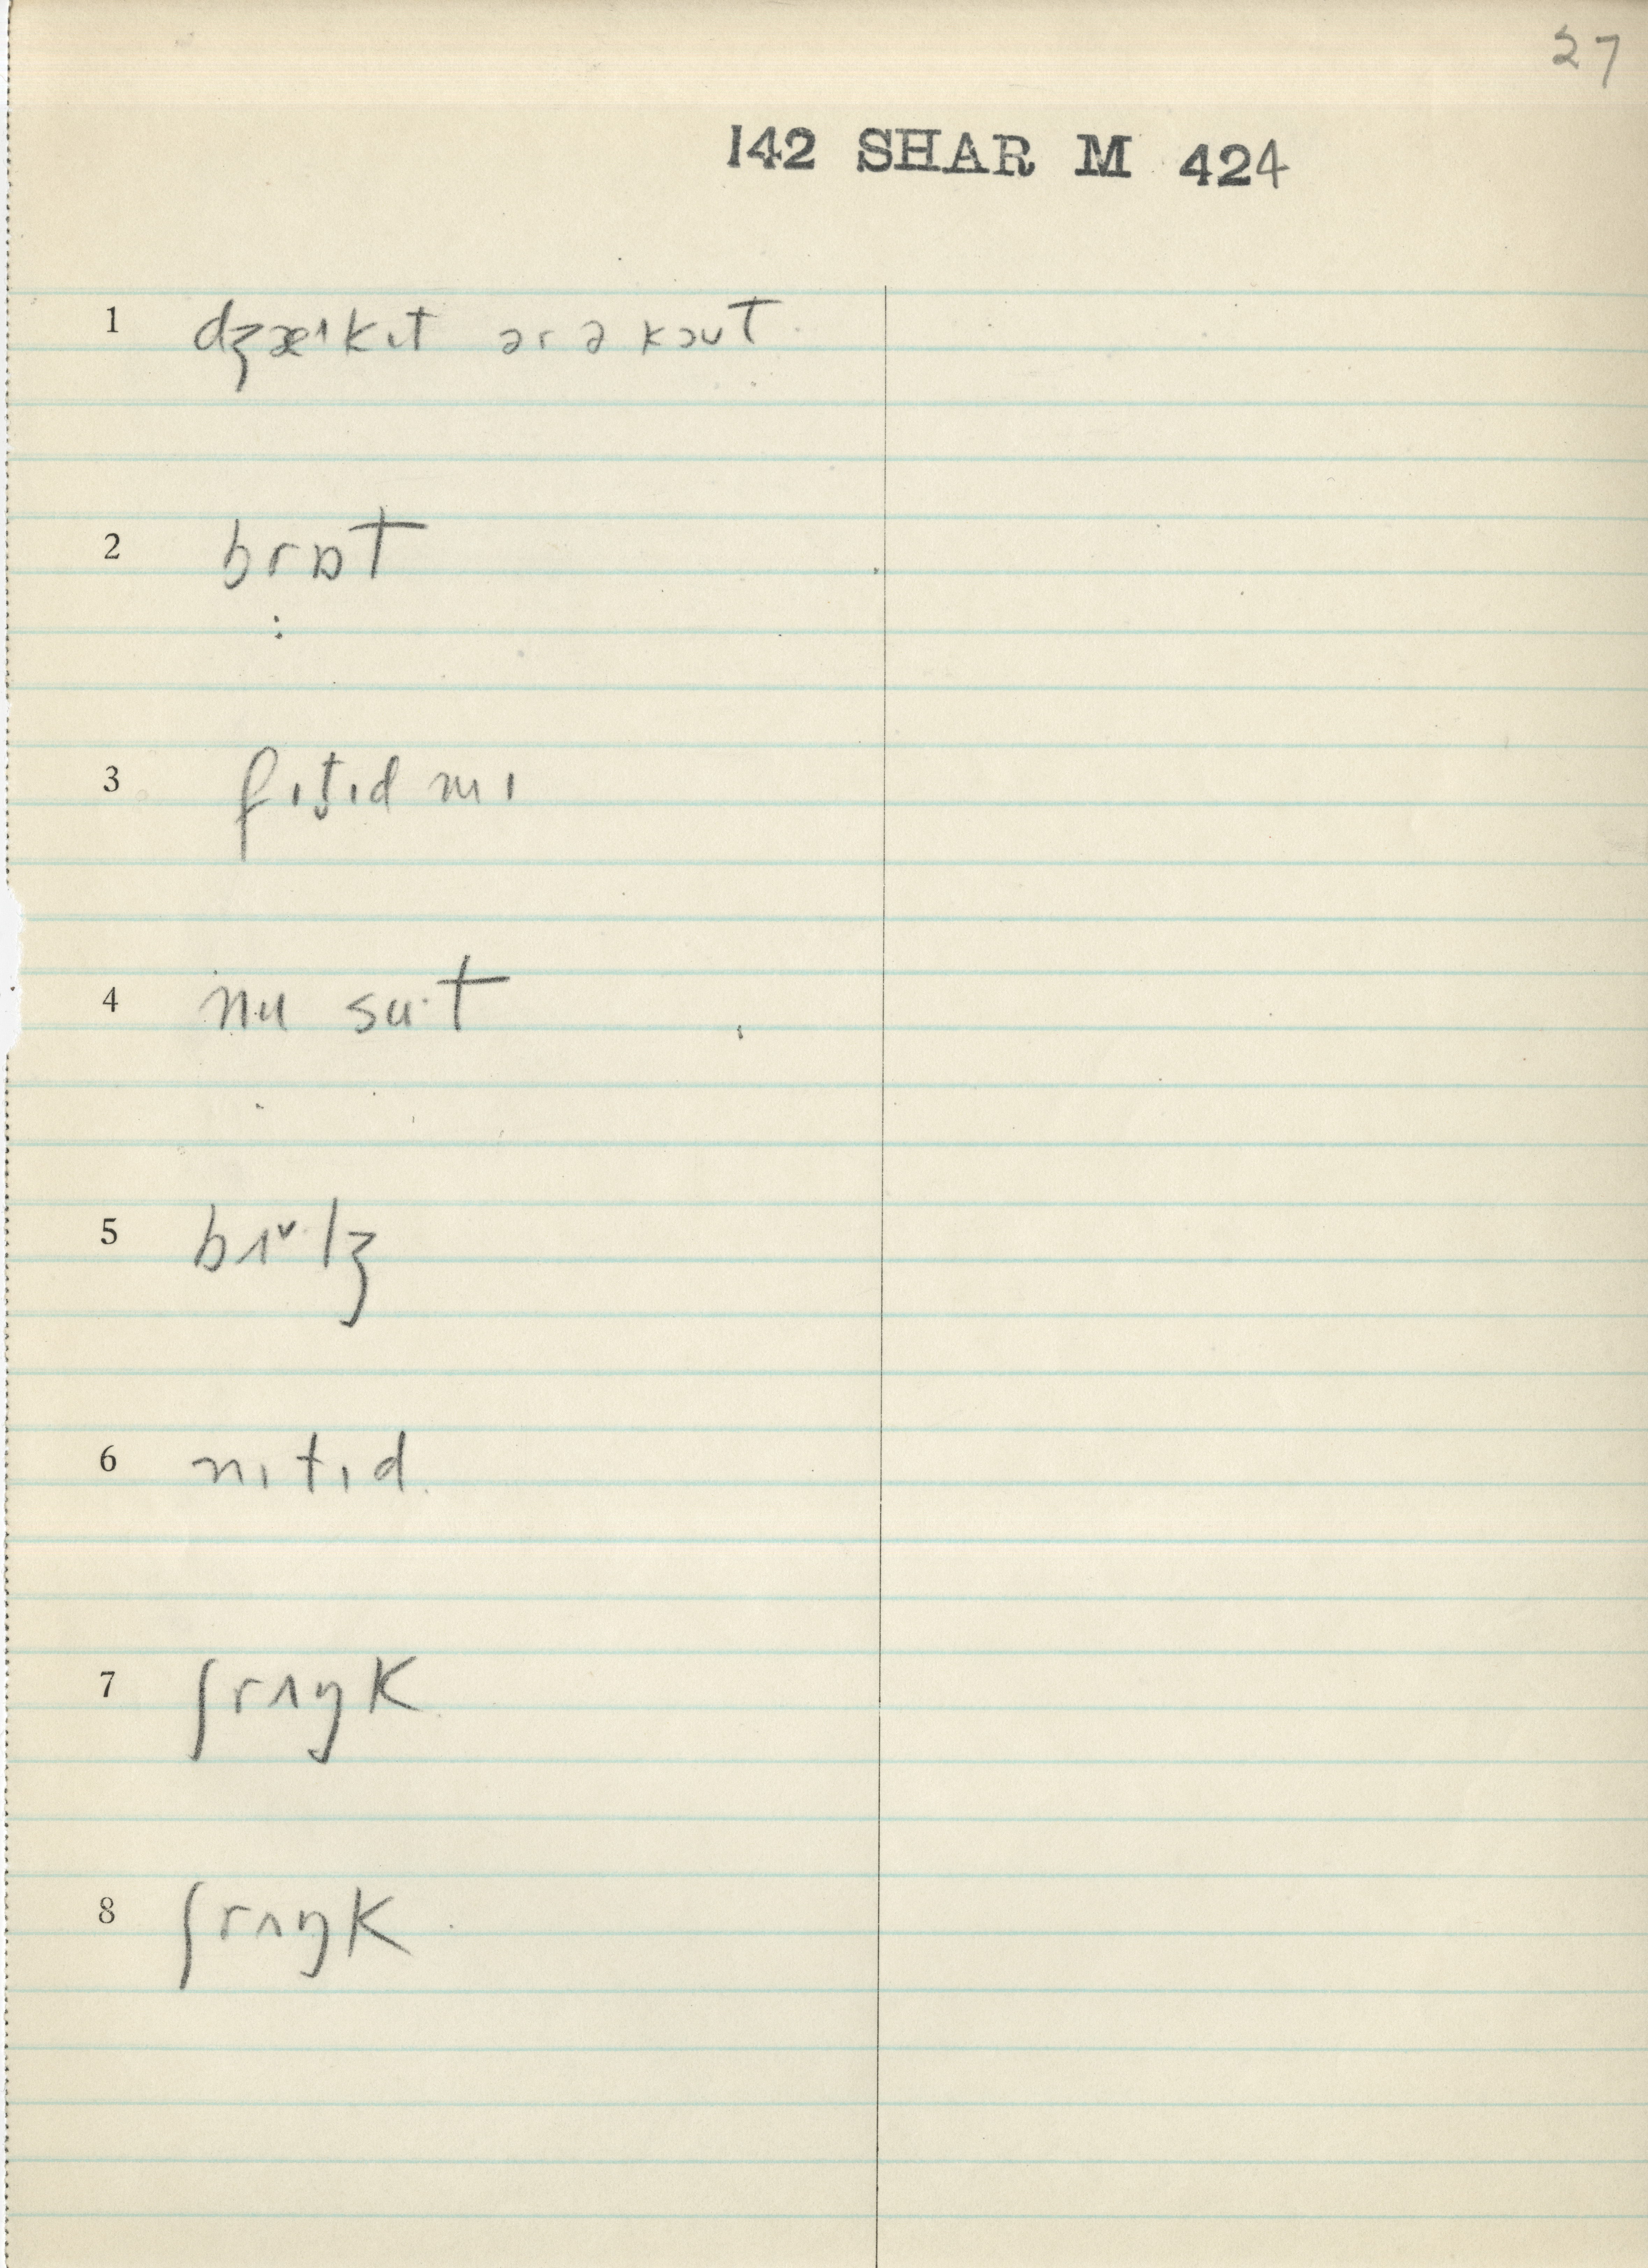 27
142 SHAR M 424
1 dʒæˈkɪt ər ə kəʊt
2 brɒt
3 fɪtɪd mɪ
4 nu su·t
5 bɪ˅lʒ
6 nɪtɪd
7 ʃrʌŋk
8 ʃrʌŋk